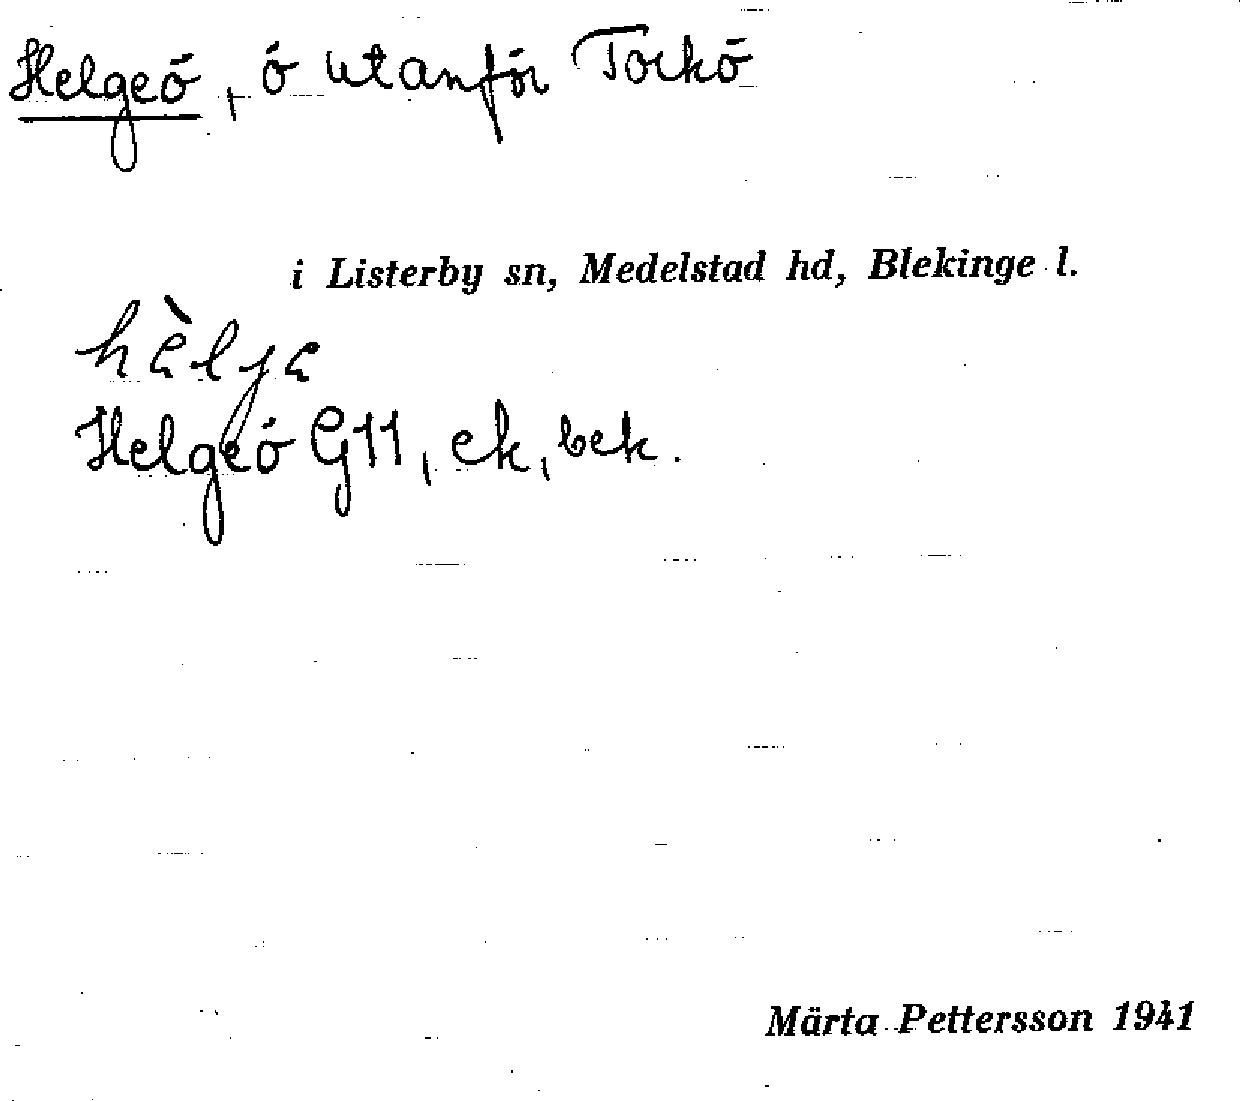 Helgeö, ö utanför Torkö
i Listerby sn, Medelstad hd, Blekinge l.
hὲljɛ
Helgeö G11, ek, bek.
Märta Pettersson 1941